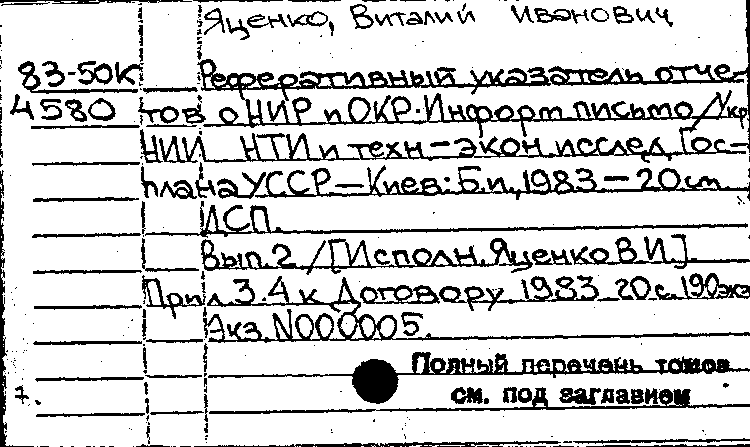 Яценко, Виталий Иванович
83-50К Реферативный указатель отче-
4580 тов о НИР и ОКР. Информ письмо/Укр
НИИ НТИ и техн-экон. исслед. Гос-
плана УССР — Киев: Б.и., 1983 — 20 см
ДСП.
Вып. 2 / [Исполн. Яценко В.И.].
Прил 3.4 к Договору. 1983 20 с. 190 экз
Экз. N000005.
Полный перечень томов
см. под заглавием
7.